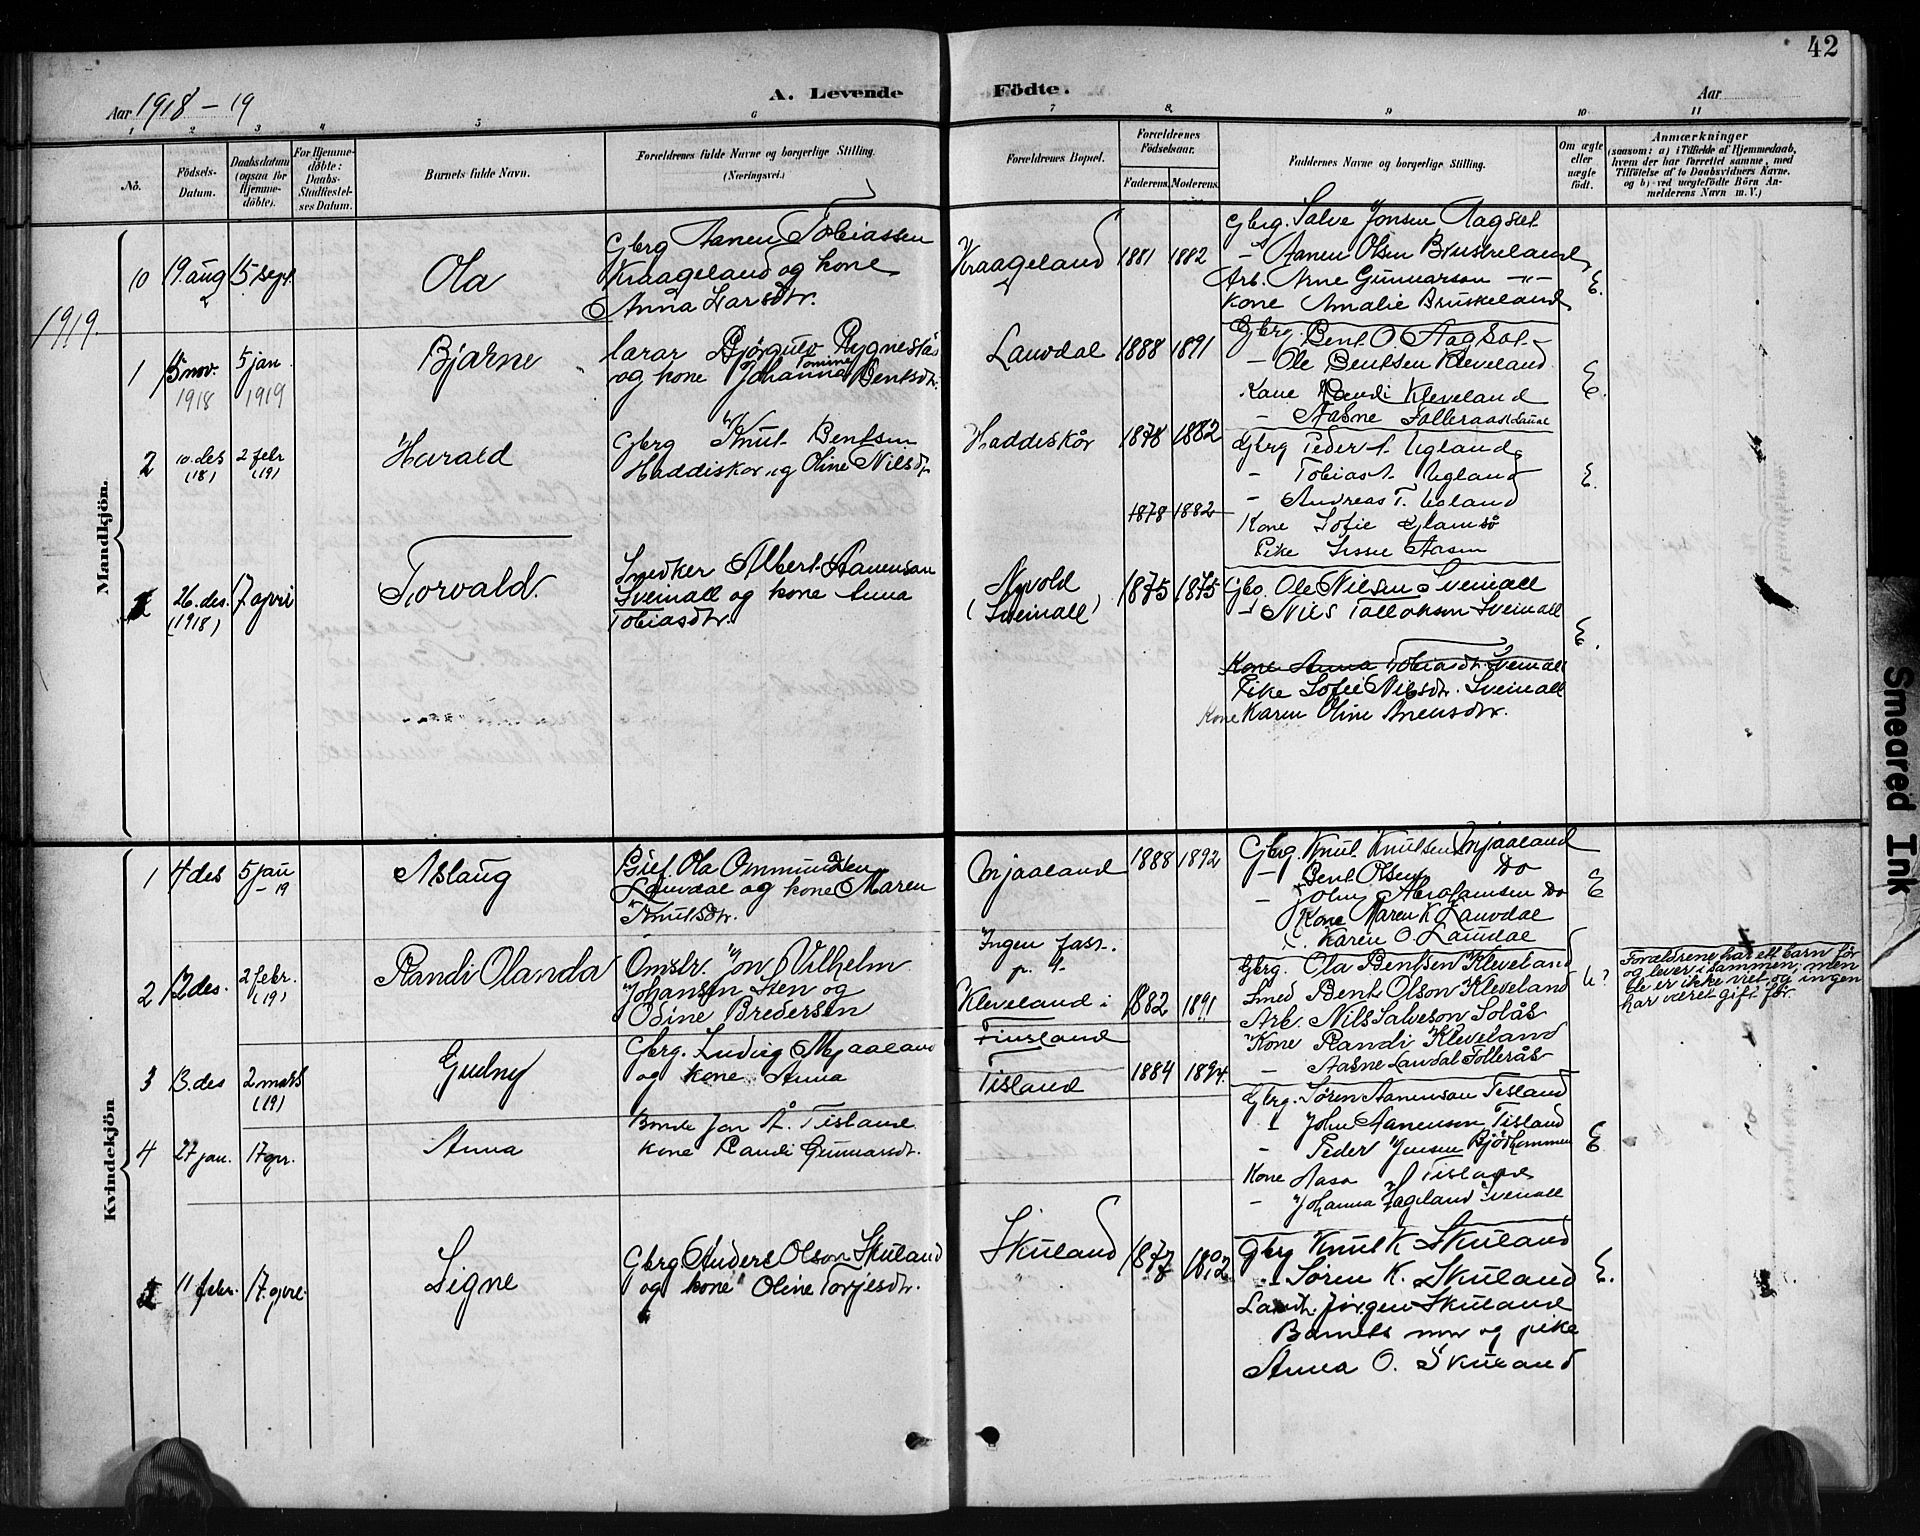 42
Aar 1918 - 19
A. Levende Födte.
Aar
1 2 3 4 5 6 7 8. 9 10 11
No.
Födsels-Datum.
Daabsdatum (ogsaa for Hjemme-döbte).
For Hjemme-döbte: Daabs-Stadfæstel-ses Datum.
Barnets fulde Navn.
Forældrenes fulde Navne og borgerlige Stilling. (Næringsvei.)
Forældrenes Bopæl.
Forældrenes Födselsaar.
Faderens. Moderens.
Faddernes Navne og borgerlige Stilling.
Om ægte eller uægte født.
Anmærkninger
(saasom: a) i Tilfælde af Hjemmedaab,
hvem der har forrettet samme, med
Tilføielse af to Daabsvidners Navne.
og b) ved uægtefödte Börn An-
melderens Navn m. V.)
Mandkjön.
10 19. aug 15 sept. Ola
Gbrg Aanen Tobiassen
Kraageland og kone
Anna Larsdtr.
Kraageland 1881 1882
Gbrg. Salve Jonsen Aagset
- Aanen Olsen Bruskeland
Arb. Arne Gunnarson -"-
Kone Amalie Bruskeland
E.
1919.
1 15 nov. 1918 5 jan 1919 Bjarne
lærar Bjørgulv Rygnestad
og kone Johanna Tomine Bentsdtr.
Lauvdal 1888 1891
Gbrg. Bent O Aagset
- Ole Bentsen Kleveland
Kone Randi Kleveland
- Aasne Folleraas Lauvd
E.
2 10. des (18) 2 febr (19) Harald
Gbrg Knut Bentsen
Haddiskor og Oline Nilsdtr
Haddiskår 1878 1882
1878 1882
Gbrg Peder A. Ugland
- Tobias A. Ugland
- Andreas T. Ugland
Kone Sofie Glamsø
Pike Lisse Aasen
E.
26. des. (1918) 17 april Torvald.
Snedker Albert Aanenson
Sveinall og kone Anna
Tobiasdtr.
Nyvold (Sveinall) 1875 1875
Gbr. Ole Nilsen Sveinall
- Nils Tallaksen Sveinall
Kone Anna Tobiasdtr. Sveinall
Pike Sofie Nilsdtr. Sveinall
Kone Karen Oline Anensdtr.
E.
Kvindekjön
1 4 des 5 jan -19 Aslaug
Ola Ommundsen
Lauvdal og kone Maren
Knutsdtr.
Mjaaland 1888 1892
Gbrg. Knut Knutsen Mjaaland
- Bent Olsen Do
- John Abrahamsen Do
Kone Maren K. Lauvdal
Karen O. Lauvdal
E
2 12 des. 2 febr. (19) Randi Olanda
Omstr. Jon Vilhelm
Johansen Sten og
Odine Bredersen
Ingen fast.
p. t.
Kleveland i
Finsland
1882 1891
Gbrg. Ola Bentsen Kleveland
Smed Bent Olson Kleveland
Arb. Nils Salveson Solås
Kone Randi Kleveland
- Aasne Lauvdal Follerås
U?
Forældrene har ett barn før
og lever i sammen; men
de er ikke viet og ingen
har været gift før.
3 13. des 2 mars (19) Gudny
Gbrg. Ludvig Mjaaland
og kone Anna
Tisland 1884 1894.
Gbrg. Søren Aanenson Tisland
- John Aanenson Tisland
- Peder Jensen Bjødhommen
Kone Aasa Tisland
- Johanna Fageland Sveinall
E
4 27 jan. 17 apr. Anna
Bonde Jon Å. Tisland
kone Randi Gunnarsdt.
11 febr. 17. april. Signe
Gbrg. Anders Olson Skuland
og kone Oline Torjesdtr.
Skuland
Gbrg Knut K Skuland
- Søren K. Skuland
Landh. Jørgen Skuland
Barnets mor og pike
Anna O. Skuland
E.
Smeared Ink